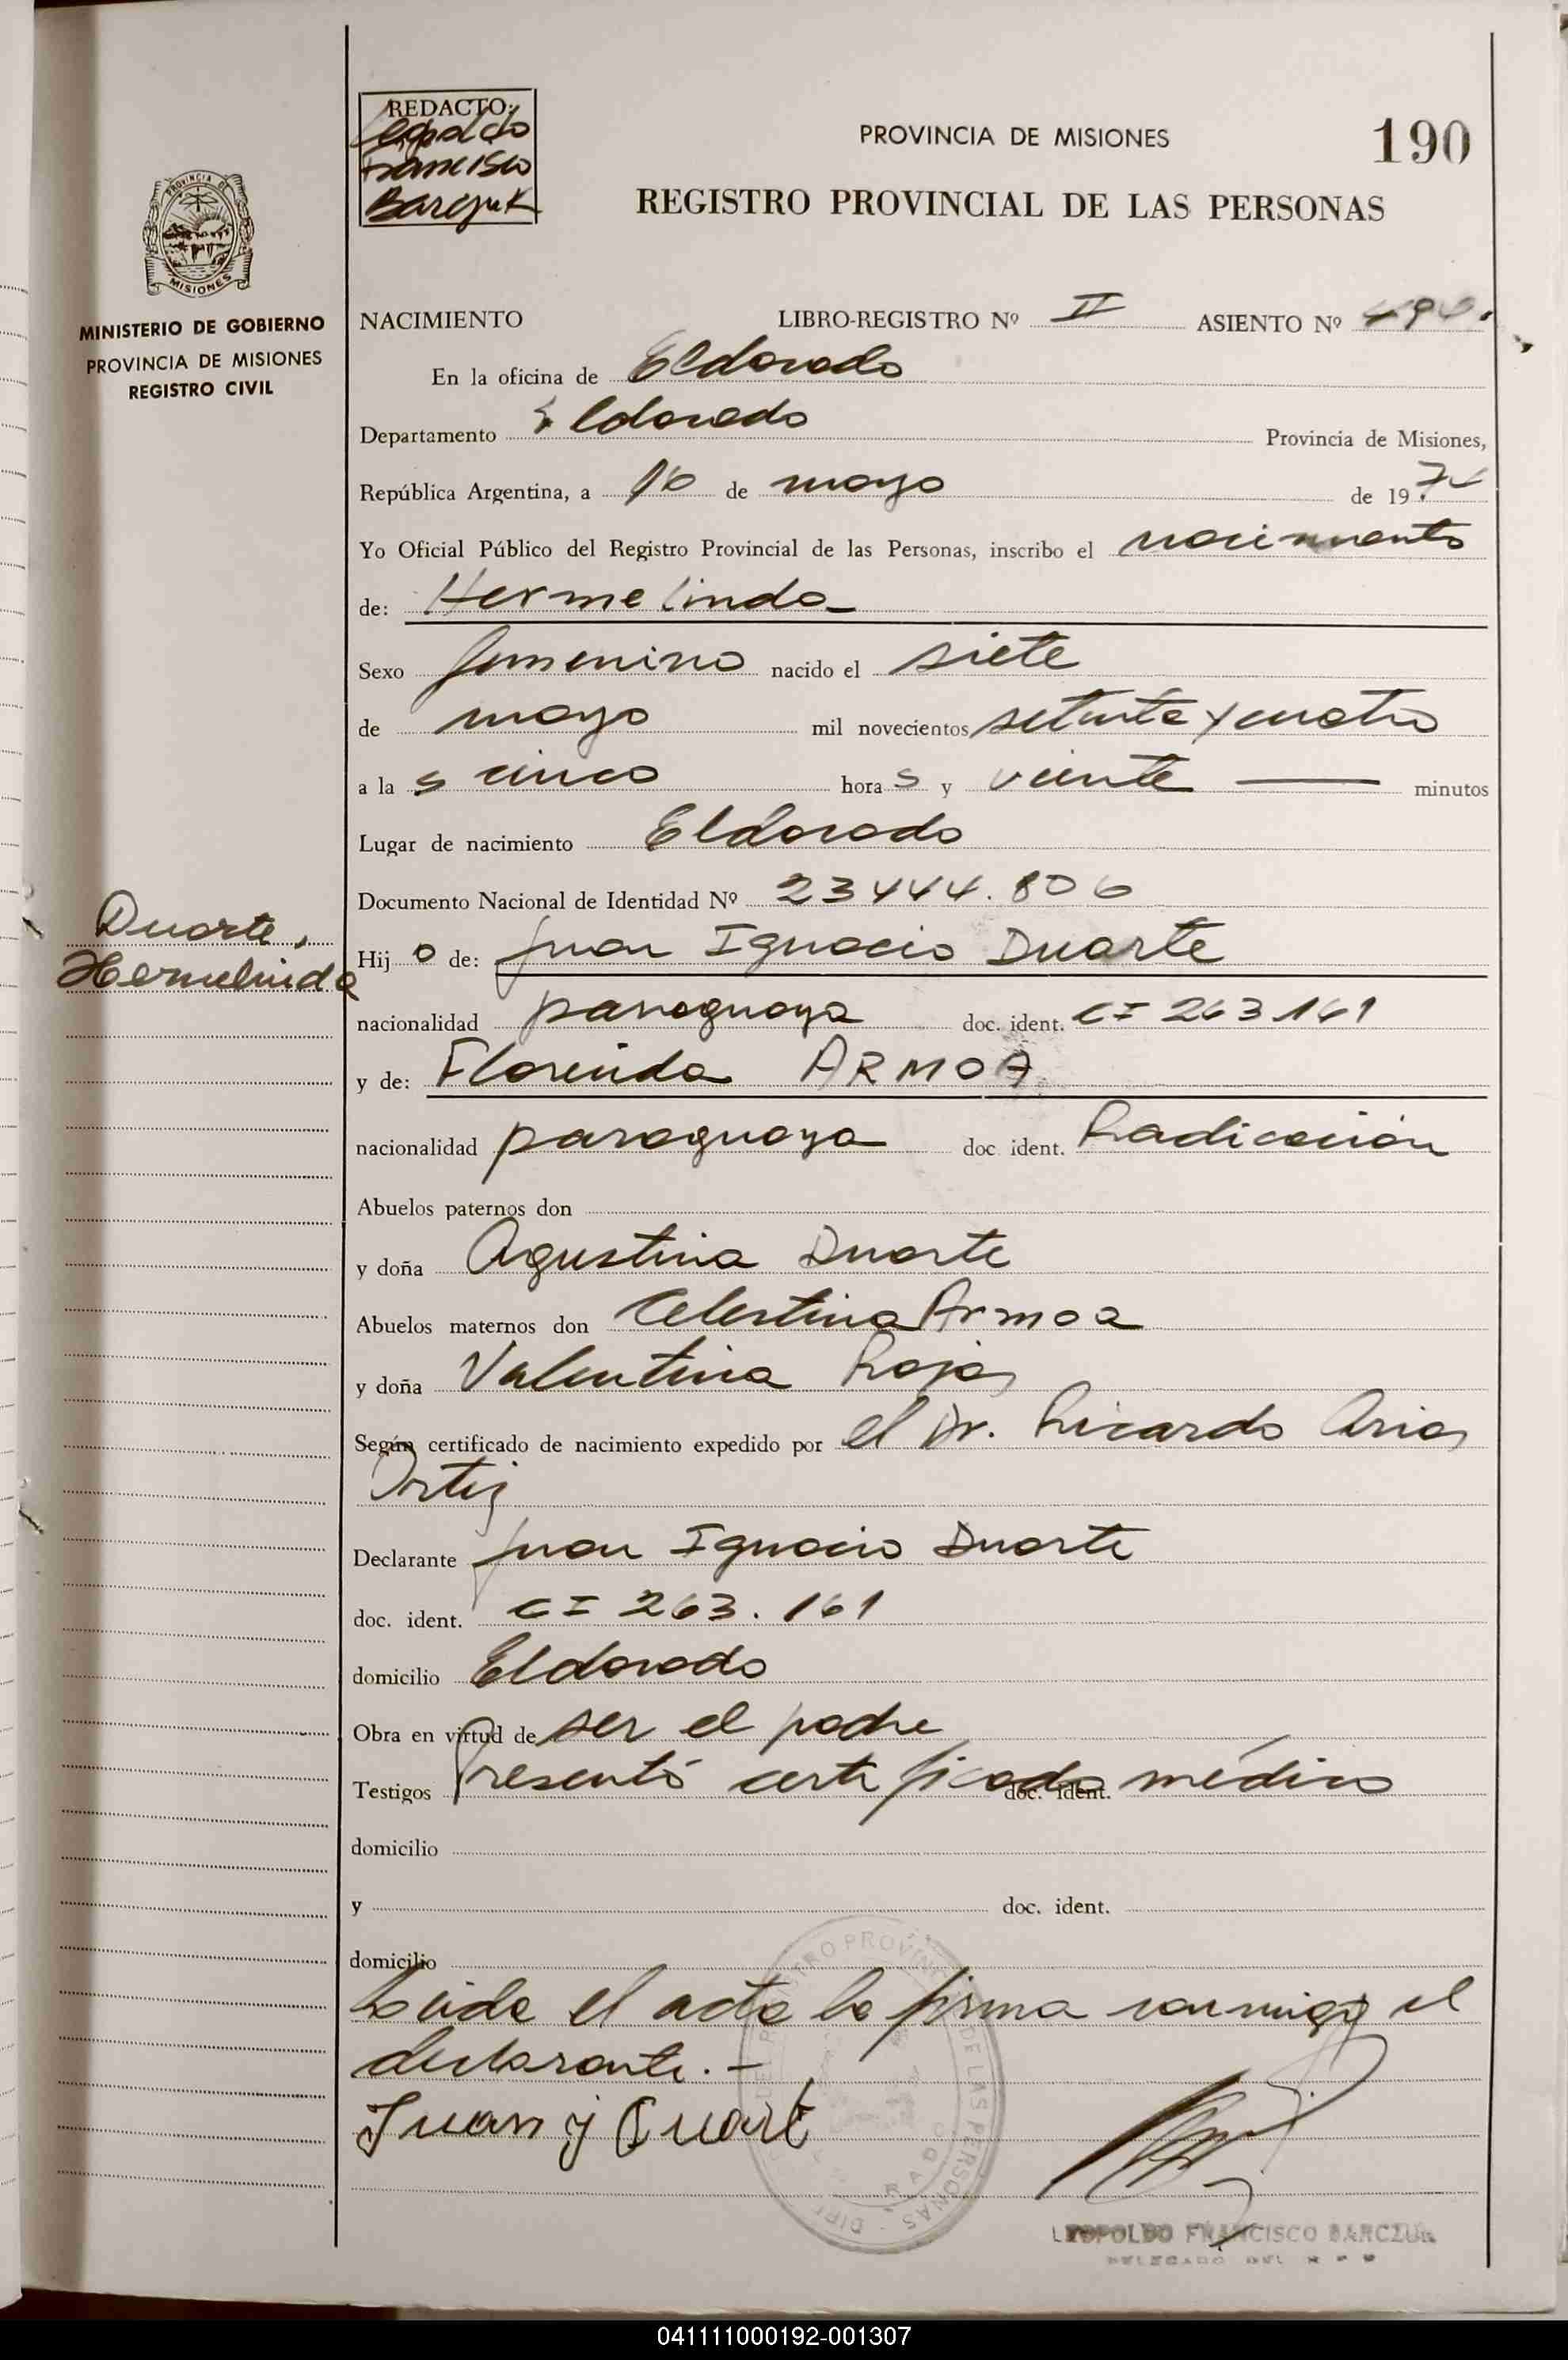 REDACTO:
Leopoldo
Francisco
Barczuk
PROVINCIA DE MISIONES
190
REGISTRO PROVINCIAL DE LAS PERSONAS
PROVINCIA DE
MISIONES
MINISTERIO DE GOBIERNO
PROVINCIA DE MISIONES
REGISTRO CIVIL
NACIMIENTO LIBRO-REGISTRO Nº II ASIENTO Nº
En la oficina de Eldorado
Departamento Eldorado Provincia de Misiones,
República Argentina, a 16 de mayo de 1974
Yo Oficial Público del Registro Provincial de las Personas, inscribo el nacimiento
de: Hermelinda
Sexo femenino nacido el siete
de mayo mil novecientos setenta y cuatro
a las cinco horas y veinte minutos
Lugar de nacimiento Eldorado
Documento Nacional de Identidad Nº 23444.806
Duarte,
Hermelinda
Hijo de: Juan Ignacio Duarte
nacionalidad paraguaya doc. ident. CI 263.161
y de: Florinda ARMOA
nacionalidad paraguaya doc ident. Radicación
Abuelos paternos don
y doña Agustina Duarte
Abuelos maternos don Celestino Armoa
y doña Valentina Rojas
Según certificado de nacimiento expedido por el Dr. Ricardo Arias
Ortiz
Declarante Juan Ignacio Duarte
doc. ident. CI 263.161
domicilio Eldorado
Obra en virtud de ser el padre
Testigos Presentó certificado médico doc. ident.
domicilio
y doc. ident.
domicilio
Leida el acta la firma conmigo el
declarante.-
Juan j Duart
LEOPOLDO FRANCISCO BARCZUK
DELEGADO DEL
041111000192-001307